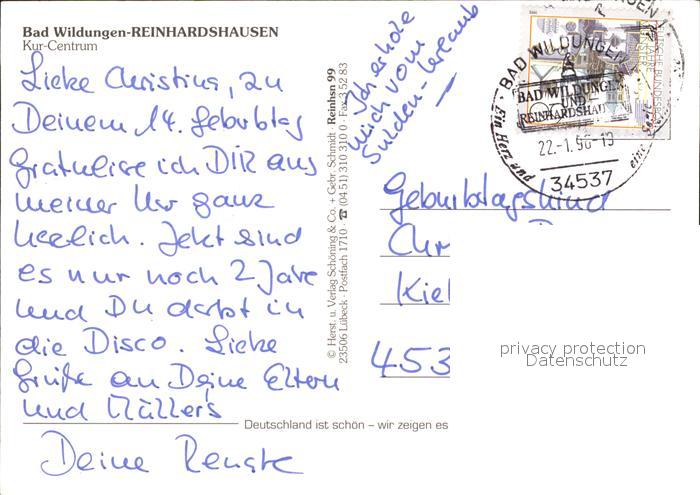 Bad Wildungen-REINHARDSHAUSEN
Kur-Centrum
Liebe Christina, zu
Deinem 14. Geburtstag
gratuliere ich DIR aus
meiner Kur ganz
herzlich. Jetzt sind
es nur noch 2 Jahre
und Du darfst in
die Disco. Liebe
Grüße an Deine Eltern
und Müllers
Deine Renate
Ich erhole
mich vom
Sünden-Urlaub
© Herst. u. Verlag Schöning & Co. + Gebr. Schmidt · Reinhsn 99
23506 Lübeck · Postfach 1710 · ☎ (04 51) 310 310 0 · Fax 3 52 83
Deutschland ist schön – wir zeigen es
BAD WILDUNGEN
BAD WILDUNGEN
UND
REINHARDSHAUSEN
22.-1.96-19
34537
Ein Herz
DEUTSCHE BUNDESPOST
Geburtstagskind
Chr
Kiel
453
privacy protection
Datenschutz